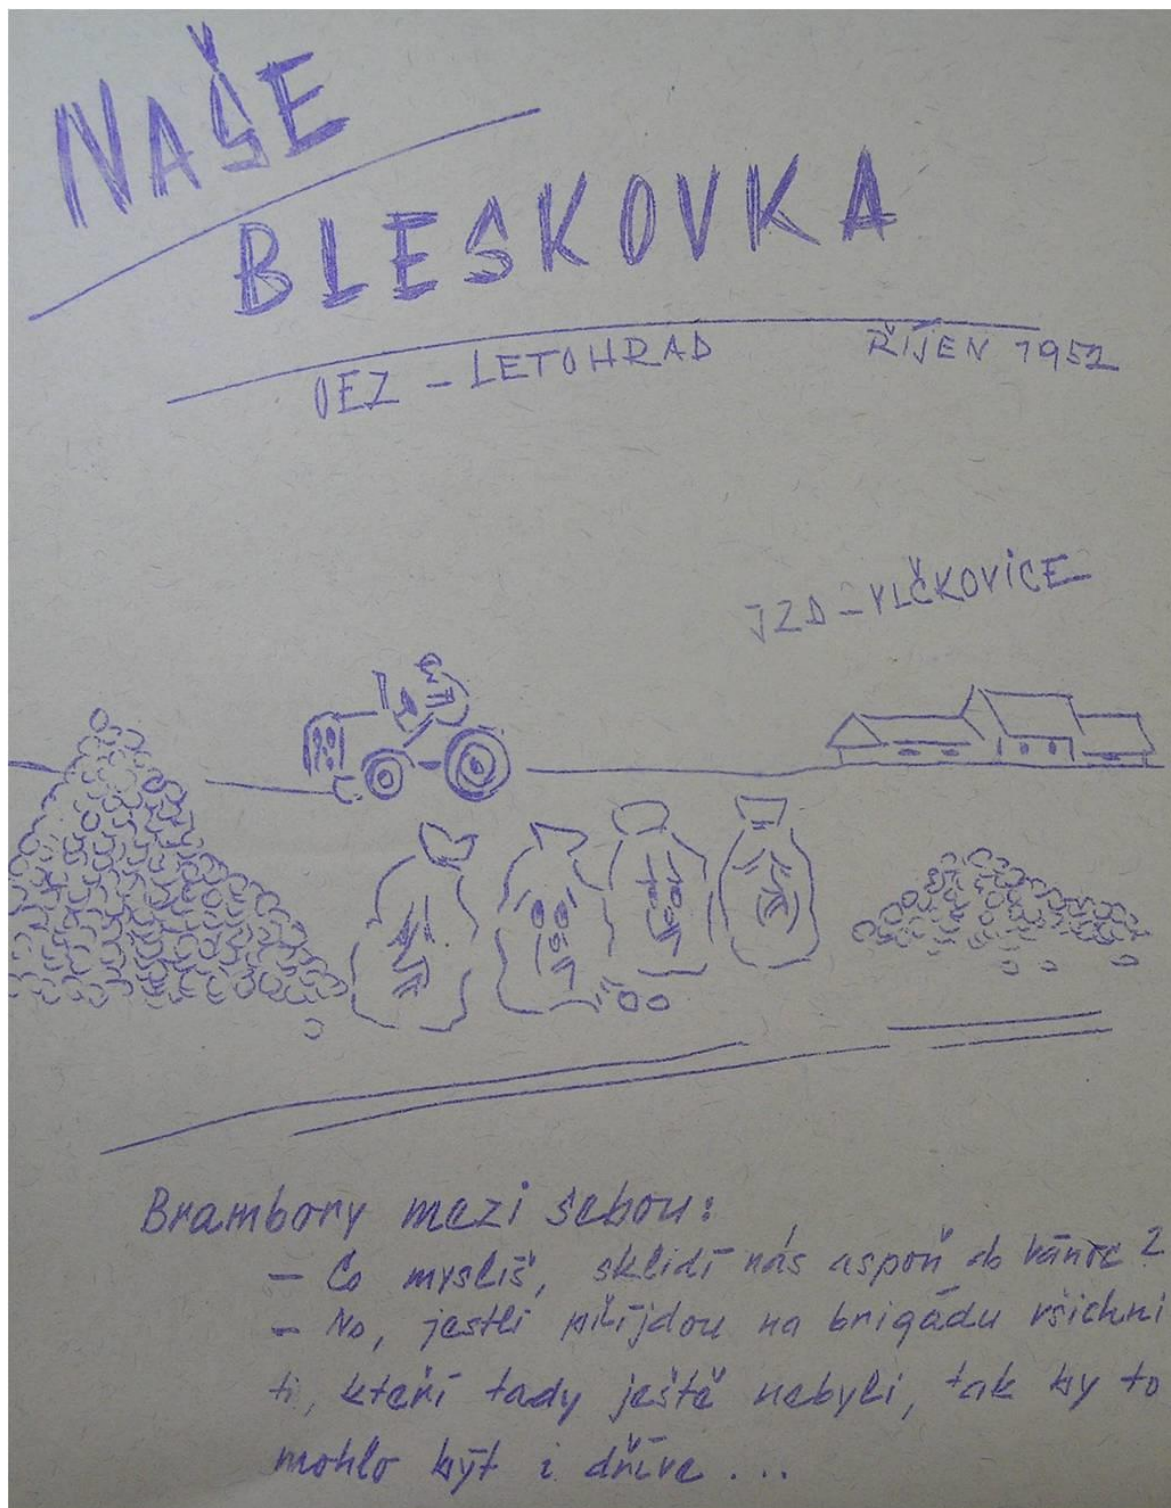 NAŠE
BLESKOVKA
OEZ - LETOHRAD ŘÍJEN 1952
JZD - VLČKOVICE
Brambory mezi sebou:
- Co myslíš, sklidí nás aspoň do vánoc?
- No, jestli přijdou na brigádu všichni
ti, kteří tady ještě nebyli, tak by to
mohlo být i dříve ...